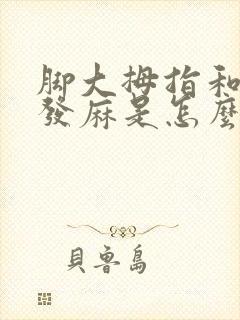 脚大拇指和
發麻是怎麼
貝魯島